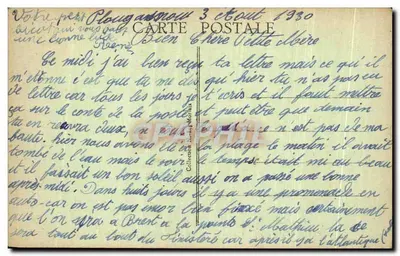 Votre petit Plougasnou 3 Aout 1930
CARTE POSTALE
une bonne
Bien Chère Petite Mère
Ce midi j'ai bien reçu ta lettre mais ce qu'il
m'etonne c'est que tu me dis qu'hier tu n'as pas eu
de lettre car tous les jours je t'ecris et il faut mettre
ça sur le compte de la poste peut être que demain
tu en recevra deux, n'est pas de ma
faute. hier nous avons la plage le matin il avait
tombé de l'eau mais le soir le temps était mis au beau
il faisait un bon soleil aussi on a passé une bonne
après-midi. Dans huits jours il y a une promenade en
auto-car on est pas encor bien fixé mais certainement
que l'on ira a Brest a la pointe St Mathieu la ce
sera tout au bout du Finistère car après il y a l'atlantique